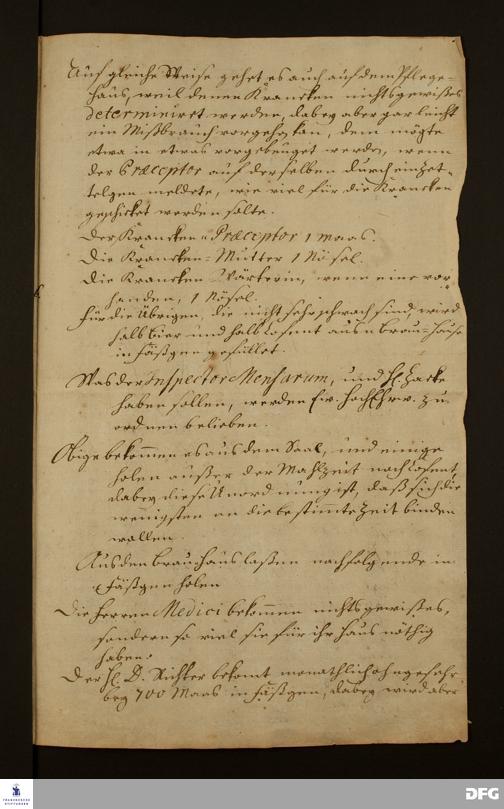 Auf gleiche Weise gehet es auch auf dem Pflege-
hauß, weil denen Krancken nichts gewißes
determiniret worden, dabey aber gar leicht
ein Mißbrauch vorgehen kan, dem mögte
etwa in etwas vorgebeuget werden, wenn
der Præceptor auf derselben durch ein Zet-
telgen meldete, wie viel für die Krancken
geschicket werden solte.
Der Krancken-Præceptor 1 Maas.
Die Krancken-Mutter 1 Nösel.
Die Krancken Wärterin, wenn eine vor-
handen, 1 Nösel.
Für die Übrigen, die nicht sehr schwach sind, wird
halb bier und halb Cofent aus n brau-Hause
in fäßgen gefüllet.
Was der Inspector Mensarum, und H. Zacke
haben sollen, werden Ew. HochEhrw. zu
ordnen belieben.
Obige bekommen es aus dem Saal, und einige
holen außer der Mahlzeit noch Cofent,
dabey diese Unordnung ist, daß sich die
wenigsten an die bestimte Zeit binden
wollen.
Aus dem brauhaus laßen nachfolgende in
Fäßgen holen
Die Herren Medici bekommen nichts gewißes,
sondern so viel sie für ihr Haus nöthig
haben.
Der H. D. Richter bekomt monathlich ohngefähr
bey 700 Maas in fäßgen, dabey wird aber
FRANCKESCHE
STIFTUNGEN
DFG